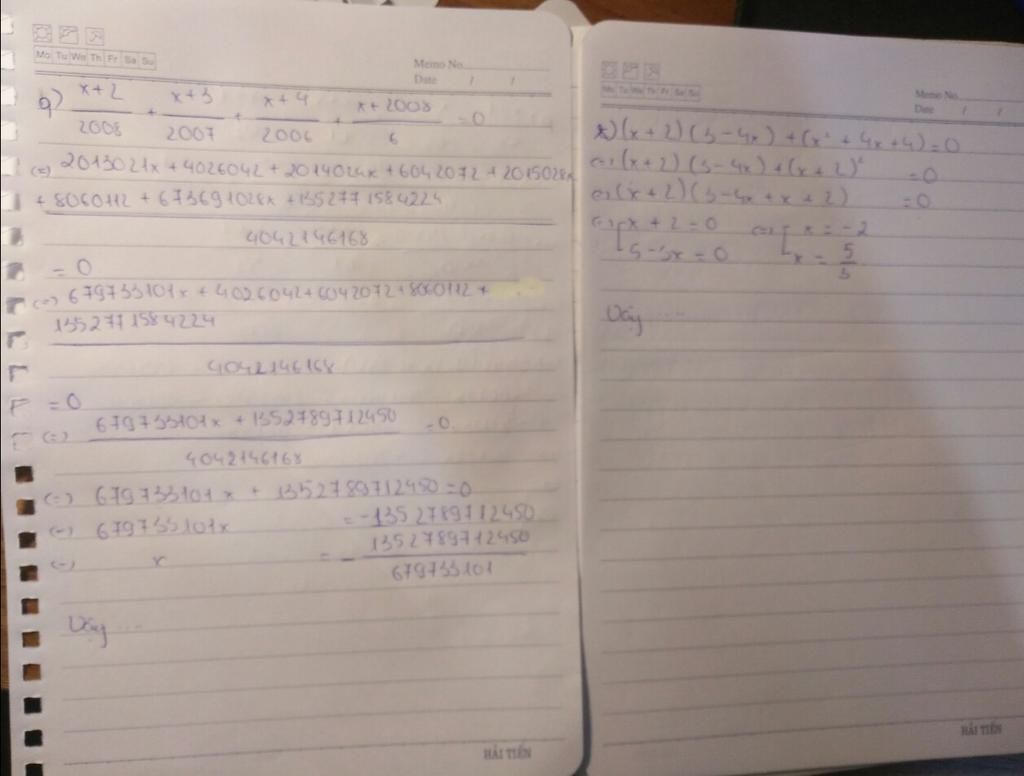 Mo Tu We Th Fr Sa Su
Memo No.
Date / /
g) x+2/2008 + x+3/2007 + x+4/2006 + x+2008/6 = 0
(=) 2013021x + 4026042 + 2014024x + 6042072 + 2015028x
+ 8060112 + 673691028x + 1352771584224
4042146168
= 0
(=) 679733101x + 4026042 + 6042072 + 8060112 +
1352771584224
4042146168
= 0
(=) 679733101x + 1352789712450 = 0
4042146168
(=) 679733101x + 1352789712450 = 0
(=) 679733101x = -1352789712450
(=) x = - 1352789712450/679733101
Vậy ...
HẢI TIẾN
Mo Tu We Th Fr Sa Su
Memo No.
Date / /
(x+2)(3-4x) + (x² + 4x + 4) = 0
(=) (x+2)(3-4x) + (x+2)² = 0
(=) (x+2)(3-4x + x + 2) = 0
(=) [ x + 2 = 0 (=) [ x = -2
5-3x = 0 x = 5/3
Vậy ...
HẢI TIẾN